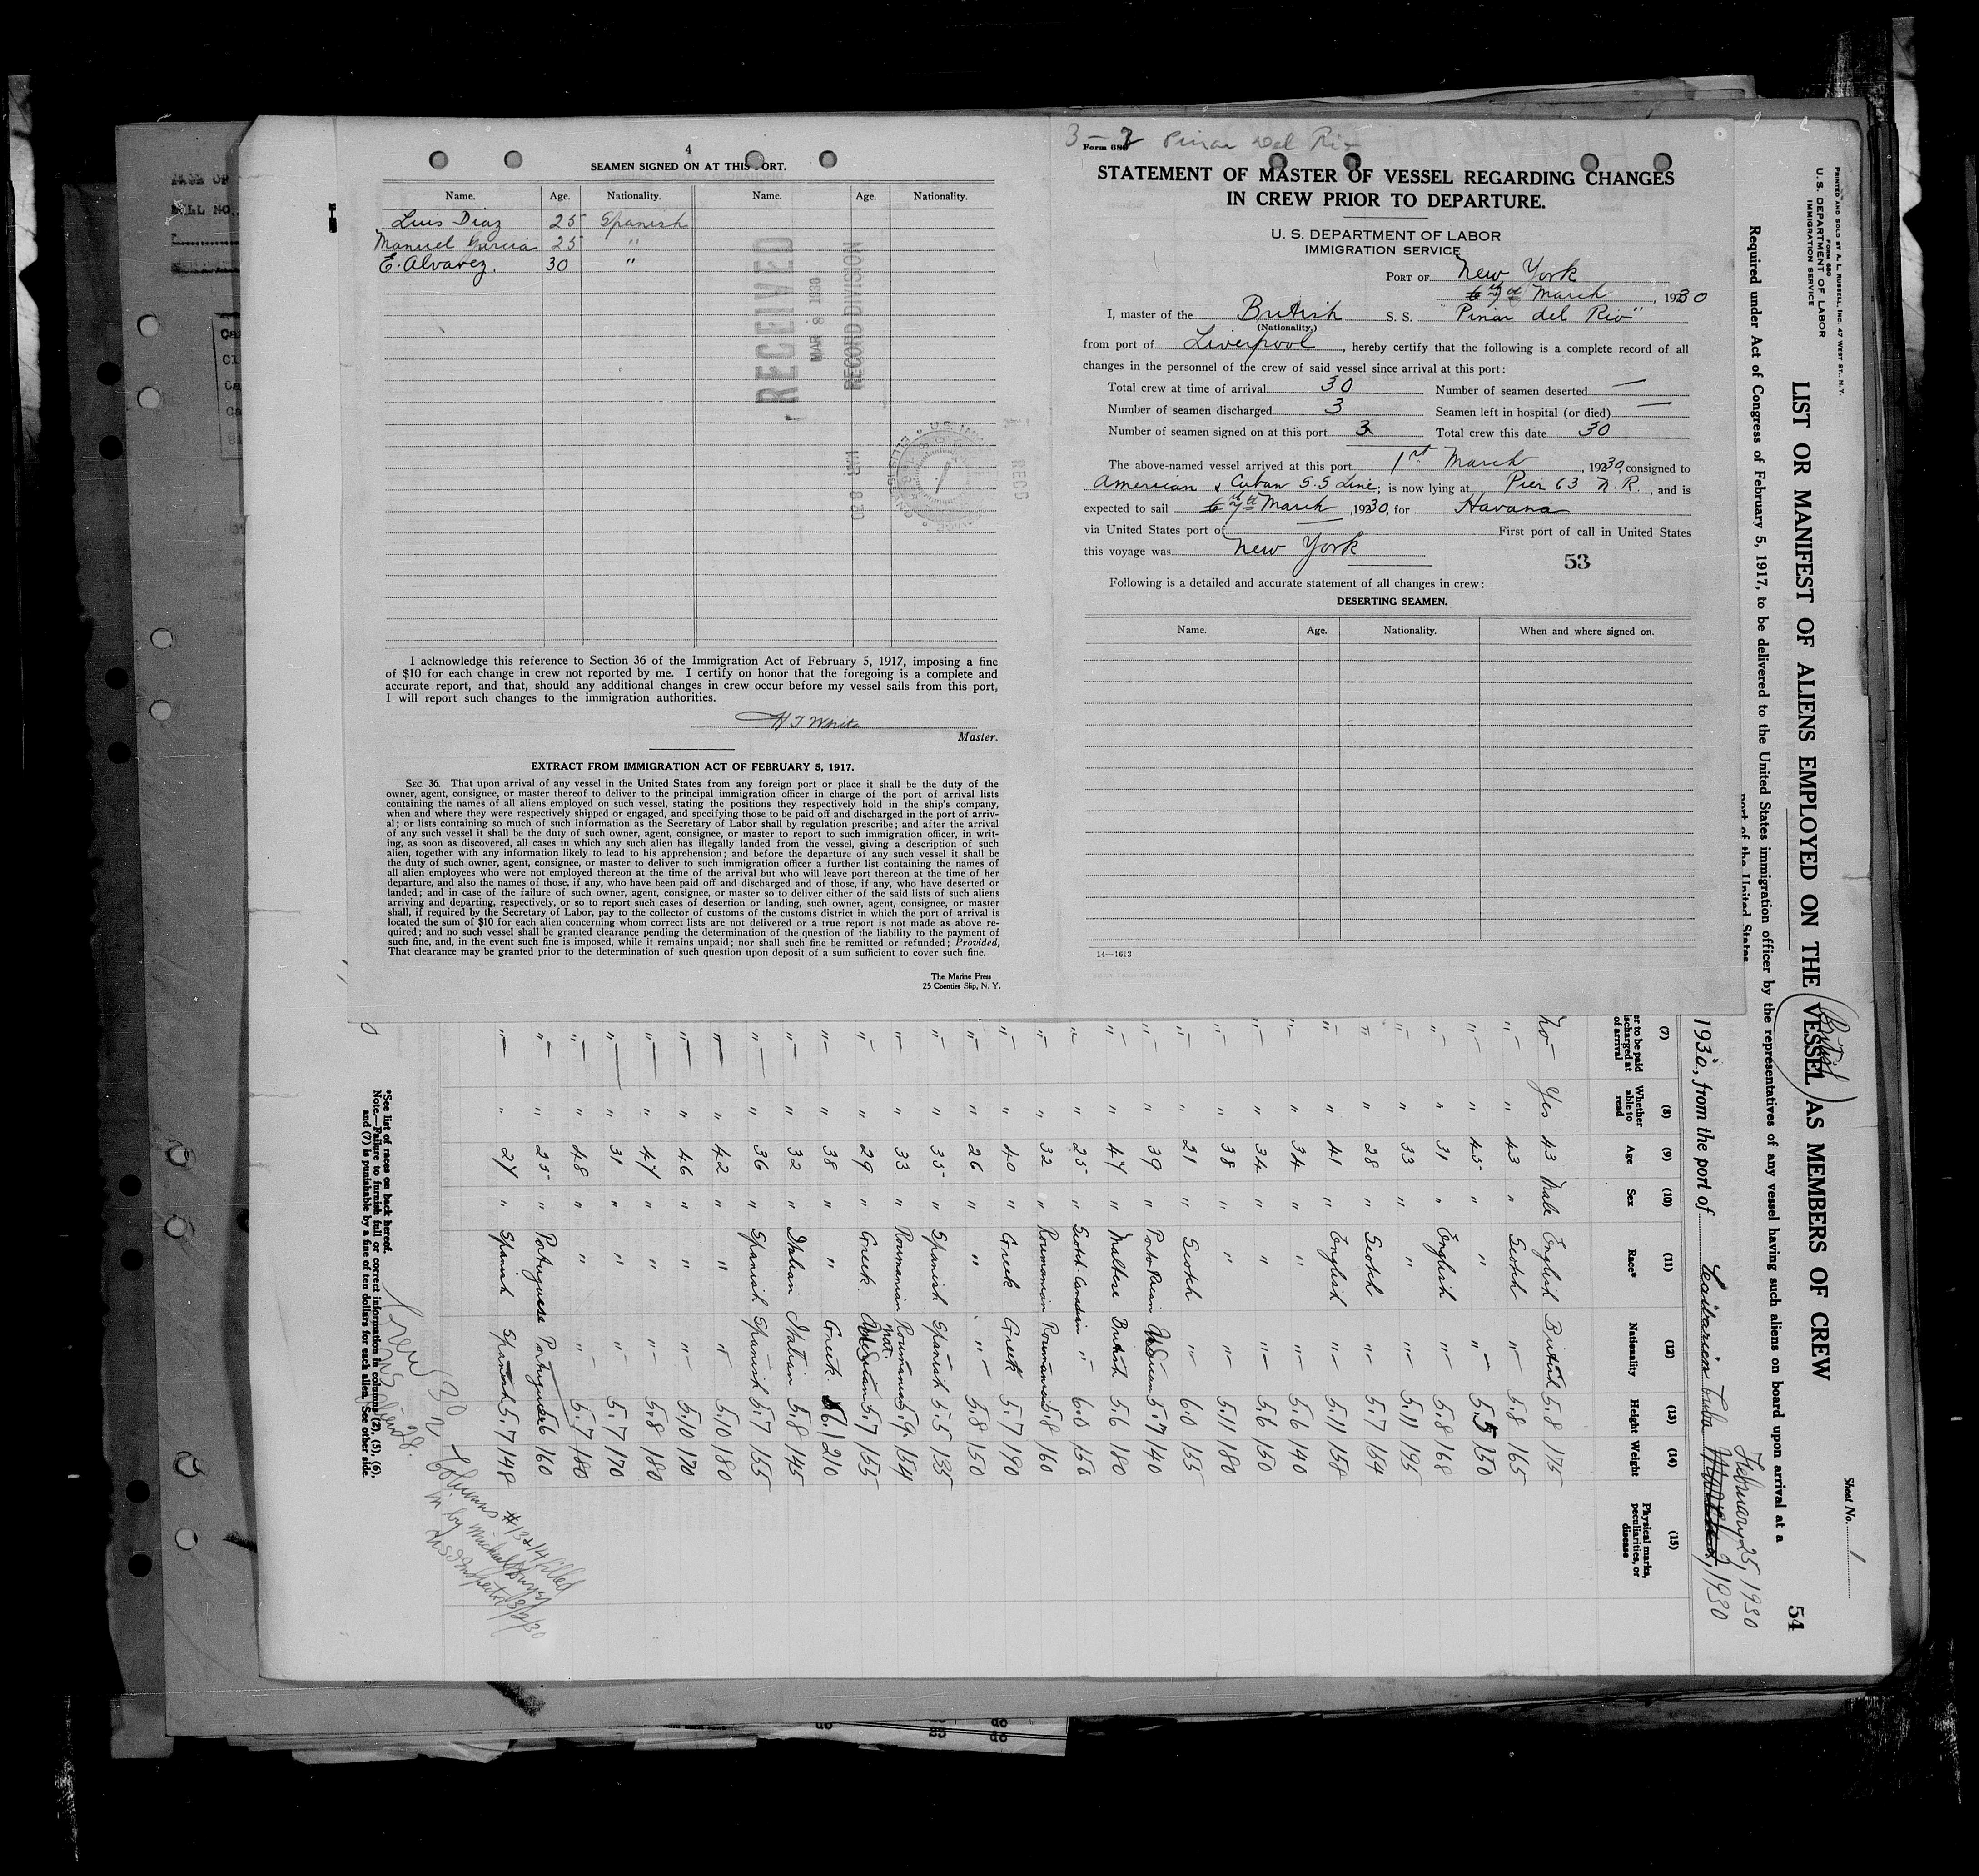 4
SEAMEN SIGNED ON AT THIS PORT.
Name. Age. Nationality. Name. Age. Nationality.
Luis Diaz 25 Spanish
Manuel Garcia 25 "
E. Alvarez. 30 "
RECEIVED
MAR 8 1930
RECORD DIVISION
I acknowledge this reference to Section 36 of the Immigration Act of February 5, 1917, imposing a fine
of $10 for each change in crew not reported by me. I certify on honor that the foregoing is a complete and
accurate report, and that, should any additional changes in crew occur before my vessel sails from this port,
I will report such changes to the immigration authorities.
H T White
Master.
EXTRACT FROM IMMIGRATION ACT OF FEBRUARY 5, 1917.
SEC. 36. That upon arrival of any vessel in the United States from any foreign port or place it shall be the duty of the
owner, agent, consignee, or master thereof to deliver to the principal immigration officer in charge of the port of arrival lists
containing the names of all aliens employed on such vessel, stating the positions they respectively hold in the ship's company,
when and where they were respectively shipped or engaged, and specifying those to be paid off and discharged in the port of arriv-
al; or lists containing so much of such information as the Secretary of Labor shall by regulation prescribe; and after the arrival
of any such vessel it shall be the duty of such owner, agent, consignee, or master to report to such immigration officer, in writ-
ing, as soon as discovered, all cases in which any such alien has illegally landed from the vessel, giving a description of such
alien, together with any information likely to lead to his apprehension; and before the departure of any such vessel it shall be
the duty of such owner, agent, consignee, or master to deliver to such immigration officer a further list containing the names of
all alien employees who were not employed thereon at the time of the arrival but who will leave port thereon at the time of her
departure, and also the names of those, if any, who have been paid off and discharged and of those, if any, who have deserted or
landed; and in case of the failure of such owner, agent, consignee, or master so to deliver either of the said lists of such aliens
arriving and departing, respectively, or so to report such cases of desertion or landing, such owner, agent, consignee, or master
shall, if required by the Secretary of Labor, pay to the collector of customs of the customs district in which the port of arrival is
located the sum of $10 for each alien concerning whom correct lists are not delivered or a true report is not made as above re-
quired; and no such vessel shall be granted clearance pending the determination of the question of the liability to the payment of
such fine, and, in the event such fine is imposed, while it remains unpaid; nor shall such fine be remitted or refunded; Provided,
That clearance may be granted prior to the determination of such question upon deposit of a sum sufficient to cover such fine.
The Marine Press
25 Coenties Slip, N. Y.
3-7 Pinar Del Rio
Form 680
STATEMENT OF MASTER OF VESSEL REGARDING CHANGES
IN CREW PRIOR TO DEPARTURE.
U. S. DEPARTMENT OF LABOR
IMMIGRATION SERVICE
PORT OF New York
7th March, 1930
I, master of the British S. S. "Pinar del Rio"
(Nationality.)
from port of Liverpool, hereby certify that the following is a complete record of all
changes in the personnel of the crew of said vessel since arrival at this port:
Total crew at time of arrival 30 Number of seamen deserted —
Number of seamen discharged 3 Seamen left in hospital (or died) —
Number of seamen signed on at this port 3 Total crew this date 30
The above-named vessel arrived at this port 1st March, 1930, consigned to
American & Cuban S.S Line; is now lying at Pier 63 N.R., and is
expected to sail 7th March, 1930, for Havana
via United States port of First port of call in United States
this voyage was New York
53
Following is a detailed and accurate statement of all changes in crew:
DESERTING SEAMEN.
Name. Age. Nationality. When and where signed on.
14—1613
PRINTED AND SOLD BY A. L. RUSSELL, INC. 47 WEST ST., N.Y.
FORM 680
U. S. DEPARTMENT OF LABOR
IMMIGRATION SERVICE
Sheet No. 1
54
LIST OR MANIFEST OF ALIENS EMPLOYED ON THE VESSEL AS MEMBERS OF CREW
British
Required under Act of Congress of February 5, 1917, to be delivered to the United States immigration officer by the representatives of any vessel having such aliens on board upon arrival at a
port of the United States
February 25, 1930
1930, from the port of Caibarien Cuba
(7) (8) (9) (10) (11) (12) (13) (14) (15)
Whether able to read Age Sex Race* Nationality Height Weight Physical marks, peculiarities, or disease
No Yes 43 Male English British 5.8 175
" " 43 " Scotch " 5.8 165
" " 45 " " " 5.5 150
" " 31 " English " 5.8 168
" " 33 " " " 5.11 195
" " 28 " Scotch " 5.7 154
" " 41 " English " 5.11 158
" " 34 " " " 5.6 140
" " 34 " " " 5.6 150
" " 38 " " " 5.11 180
" " 21 " Scotch " 6.0 155
" " 39 " Porto Rican 5.7 140
" " 47 " Maltese British 5.6 180
" " 25 " " 6.0 156
" " 32 " Roumanian Roumanian 5.8 160
" " 40 " Greek Greek 5.7 190
" " 26 " " " 5.8 150
" " 35 " Spanish Spanish 5.5 135
" " 33 " Roumanian Roumanian 5.9 154
" " 29 " Greek 5.7 155
" " 38 " " Greek 6.1 210
" " 32 " Italian Italian 5.8 145
" " 36 " Spanish Spanish 5.7 155
" " 42 " " " 5.10 180
" " 46 " " " 5.10 170
" " 47 " " " 5.8 180
" " 31 " " " 5.7 170
" " 48 " " " 5.7 180
" " 25 " Portuguese Portuguese 5.6 160
" " 27 " Spanish Spanish 5.7 148
*See list of races on back hereof.
Note.—Failure to furnish full or correct information in columns (2), (5), (6),
and (7) is punishable by a fine of ten dollars for each alien. See other side
Crew 30
Columns #13 & 14 filled
in by
US Inspector 3/2/30